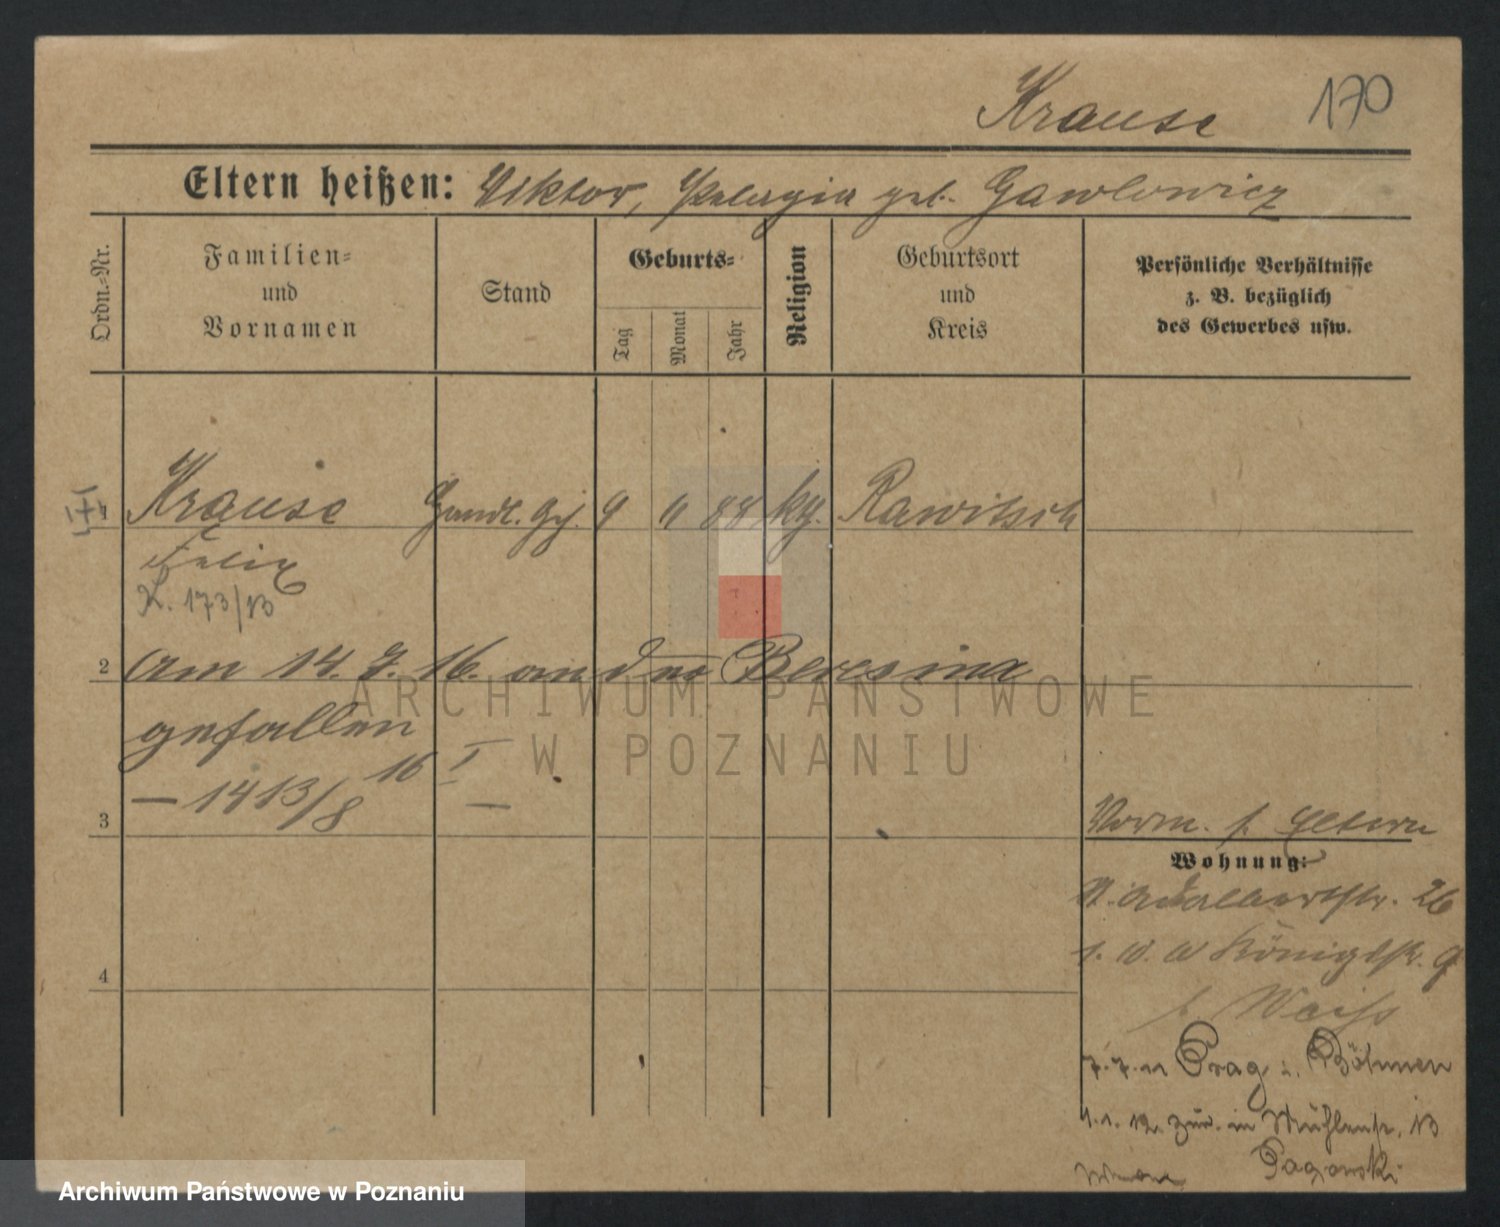 Krause 170
Eltern heißen: Viktor, Pelagia geb. Gawlowicz
Ordn.-Nr.
Familien-
und
Vornamen
Stand
Geburts-
Tag
Monat
Jahr
Religion
Geburtsort
und
Kreis
Persönliche Verhältnisse
z. B. bezüglich
des Gewerbes usw.
1 Krause Handl. Geh. 9 11 88 kg. Rawitsch
Felix
K. 173/13
2 am 14. 7. 16. an der Beresina
gefallen
— 1413/8 16 I —
3
4
Vorm. s. Eltern
Wohnung:
St. Adalbertstr. 26
1. 10. Königstr. 9
b. Weiss
7.7.11 Prag i. Böhmen
1.1.12. zur. in Mühlenstr. 13
Pagowski
ARCHIWUM PAŃSTWOWE
W POZNANIU
Archiwum Państwowe w Poznaniu